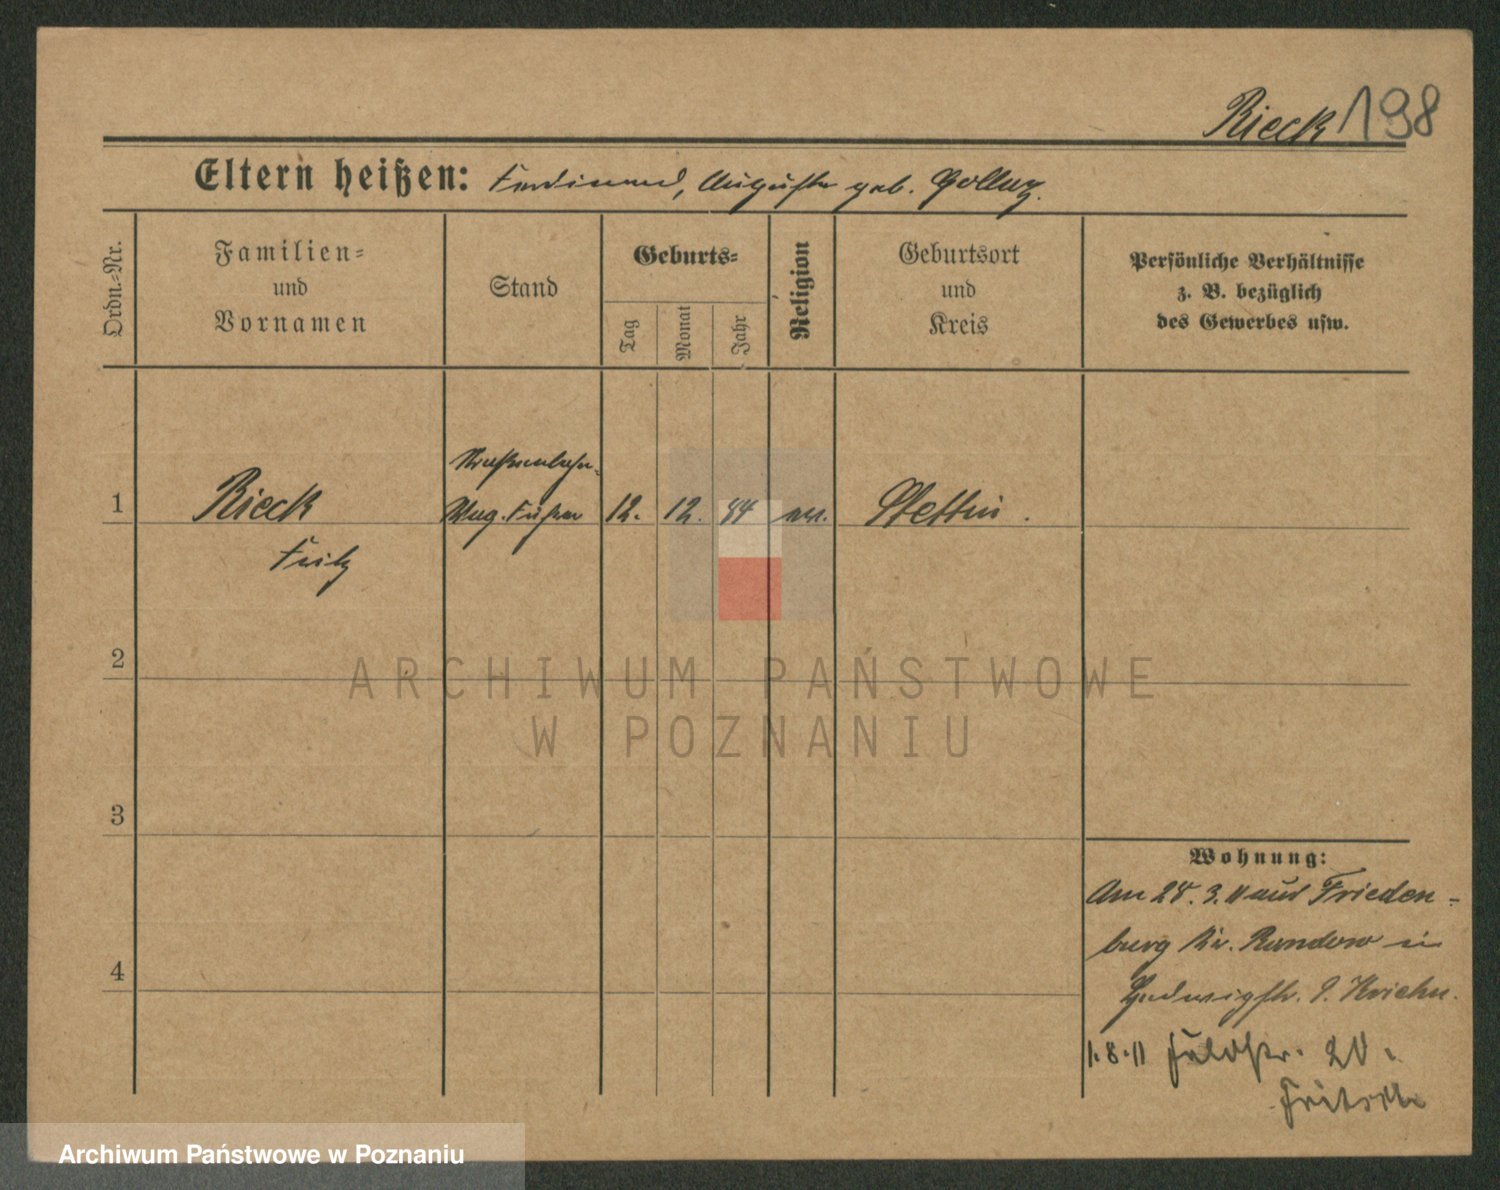 Rieck 198
Eltern heißen: Ferdinand, Auguste geb.
Ordn.-Nr.
Familien-
und
Vornamen
Stand
Geburts-
Tag
Monat
Jahr
Religion
Geburtsort
und
Kreis
Persönliche Verhältnisse
z. B. bezüglich
des Gewerbes usw.
Straßenbahn-
1 Rieck Wag. Führer 12. 12. 84 ev. Stettin.
Fritz
2
3
4
Wohnung:
Am 28. 3. 11 aus Frieden-
burg Kr. Randow in
1.8.11 Feldstr. 20.
ARCHIWUM PAŃSTWOWE
W POZNANIU
Archiwum Państwowe w Poznaniu